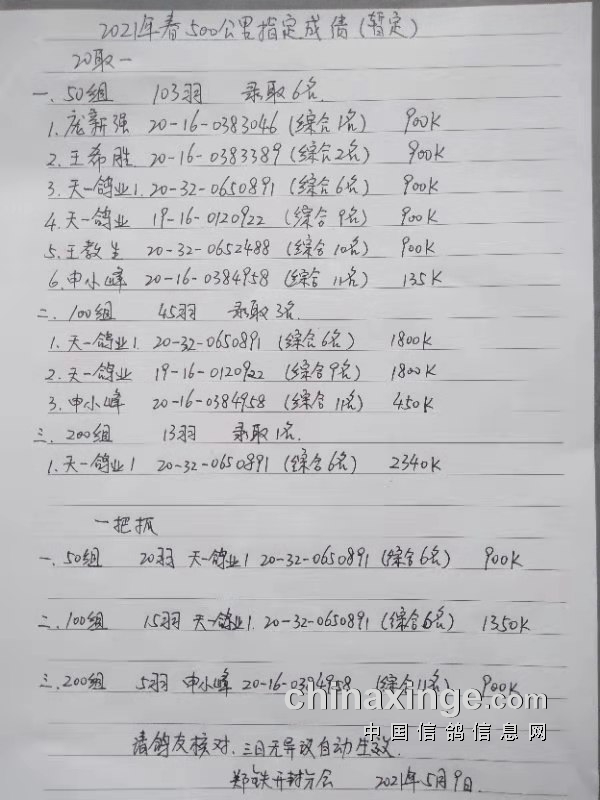 2021年春500公里指定成绩(暂定)
20取一
一. 50组 103羽 录取6名.
1. 庞新强 20-16-0383046 (综合1名) 900K
2. 王希胜 20-16-0383389 (综合2名) 900K
3. 天一鸽业1. 20-32-0650891 (综合6名) 900K
4. 天一鸽业 19-16-0120922 (综合9名) 900K
5. 王教生 20-32-0652488 (综合10名) 900K
6. 申小峰 20-16-0384958 (综合11名) 135K
二. 100组 45羽 录取3名.
1. 天一鸽业1. 20-32-0650891 (综合6名) 1800K
2. 天一鸽业 19-16-0120922 (综合9名) 1800K
3. 申小峰 20-16-0384958 (综合11名) 450K
三. 200组 13羽 录取1名.
1. 天一鸽业1 20-32-0650891 (综合6名) 2340K
一把抓
一. 50组 20羽 天一鸽业1 20-32-0650891 (综合6名) 900K
二. 100组 15羽 天一鸽业1. 20-32-0650891 (综合6名) 1350K
三. 200组 5羽 申小峰 20-16-0384958 (综合11名) 900K
chinaxinge.com
中国信鸽信息网
请鸽友核对.三日无异议自动生效.
郑铁开封分会 2021年5月9日.